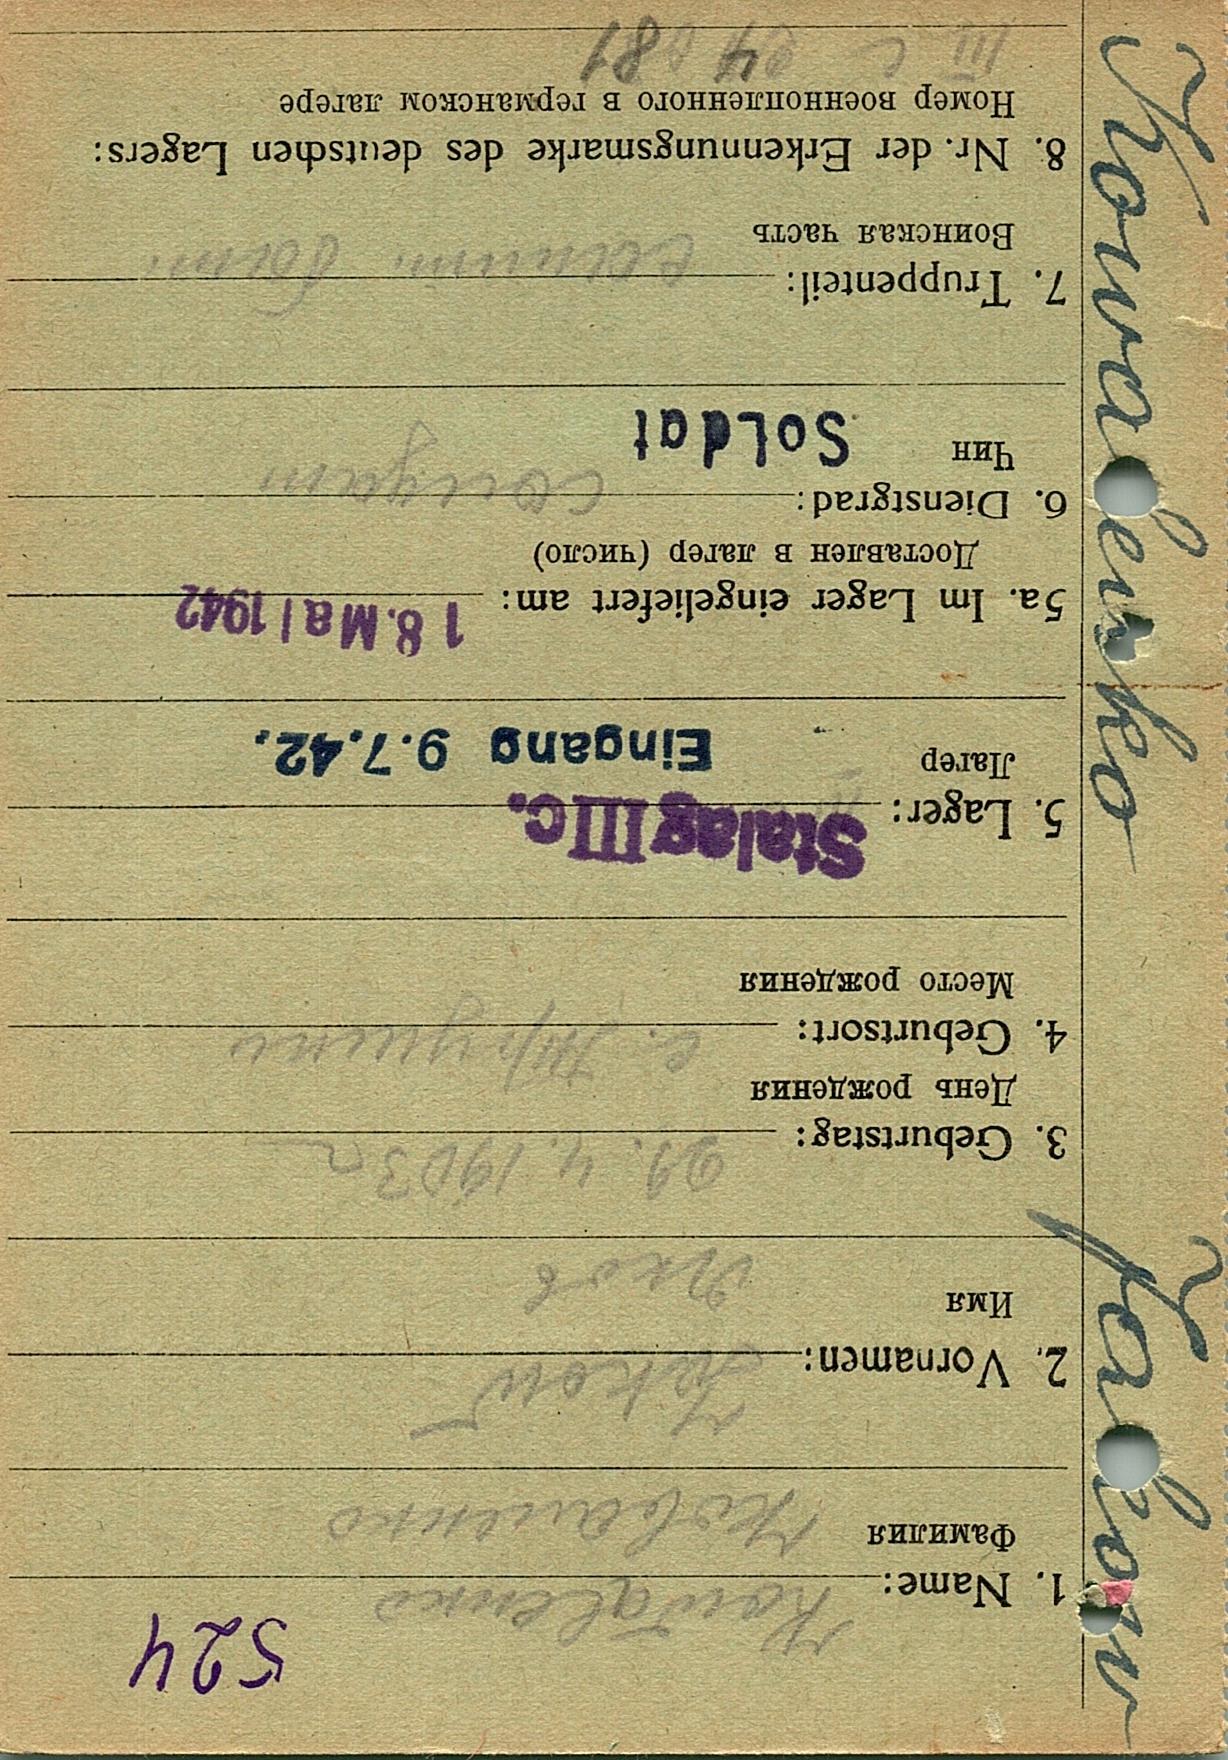 524
Kowalenko
1. Name:
Фамилия
Коваленко
Jakow
2. Vornamen:
Имя
Яков
3. Geburtstag: 4.1903
День рождения
4. Geburtsort: с.
Место рождения
Stalag III c.
5. Lager:
Лагер
Eingang 9.7.42.
5a. Im Lager eingeliefert am: 18. Mai 1942
Доставлен в лагер (число)
6. Dienstgrad: солдат
Чин
Soldat
7. Truppenteil:
Воинская часть
8. Nr. der Erkennungsmarke des deutschen Lagers:
Номер военнопленного в германском лагере
III C
Kowalenko Jakow